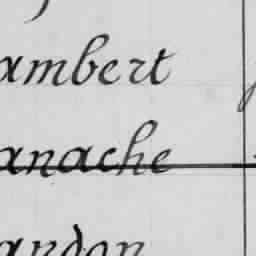 ambert
anache
ardon